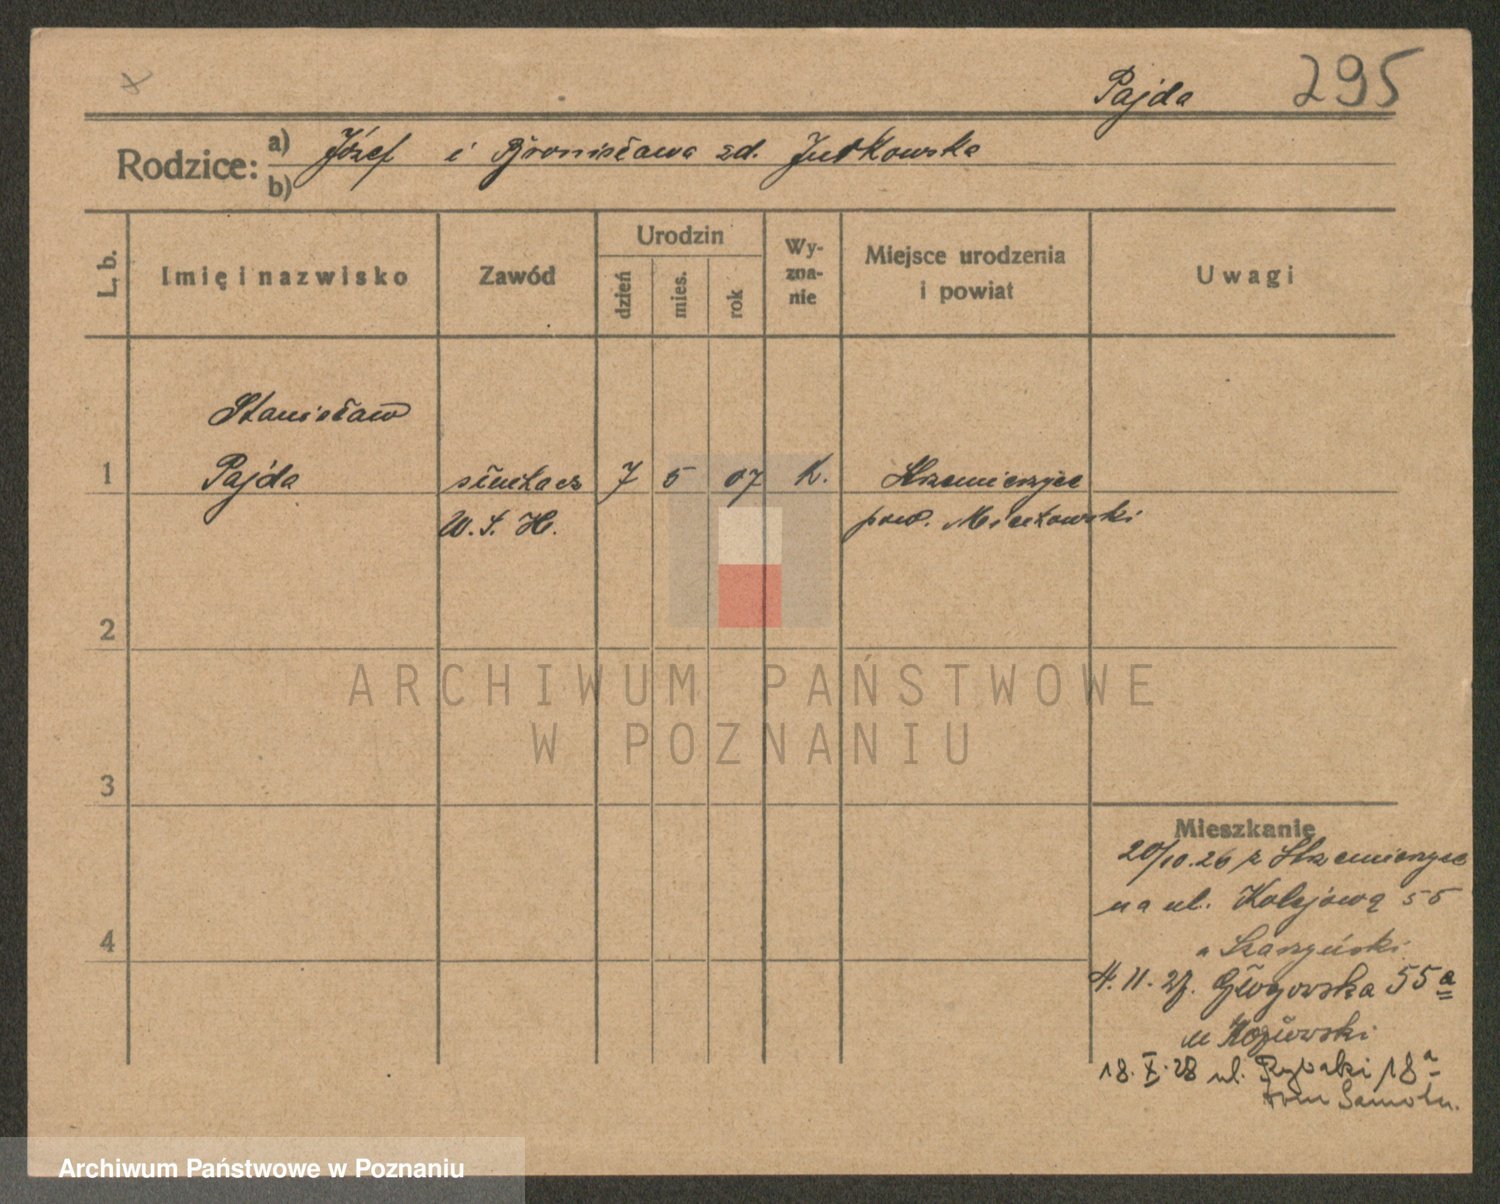 Pajda 295
Rodzice: a) Józef i Bronisława zd. Jutkowska
b)
L. b. Imię i nazwisko Zawód Urodzin dzień mies. rok Wy-zna-nie Miejsce urodzenia i powiat Uwagi
Stanisław
1 Pajda słuchacz 7 5 07 k. Strzemieszyce
W. S. H. pow. Miechowski
2
ARCHIWUM PAŃSTWOWE
W POZNANIU
3
Mieszkanie
20/10.26 z Strzemieszyc
na ul. Kolejową 55
4
4.11.27. Głogowska 55a
u Kozłowski
18.X.28 ul. Rybaki 18a
Archiwum Państwowe w Poznaniu